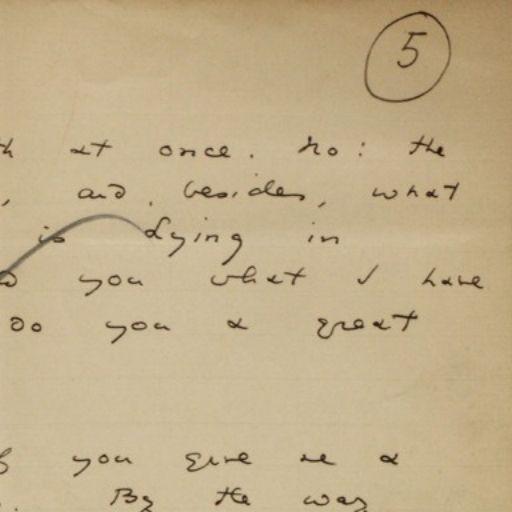 5
at once. No: the
, and, besides, what
is dying in
you what I have
do you a great
you give me a
. By the way